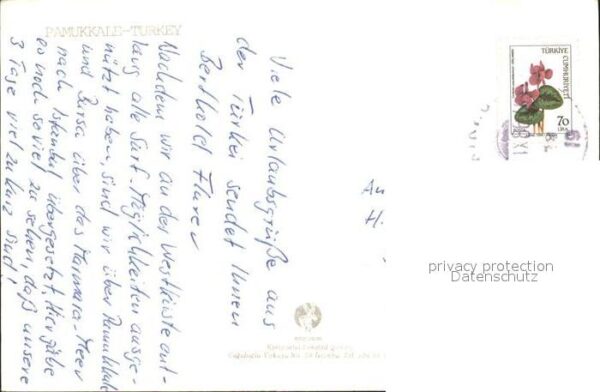 PAMUKKALE-TURKEY
Viele Urlaubsgrüße aus
der Türkei sendet Ihnen
Berthold
Nachdem wir an der Westküste ent-
lang alle Surf-Möglichkeiten ausge-
nützt haben, sind wir über Pamukkale
und Bursa über das Marmara-Meer
nach Istanbul übergesetzt. Hier gäbe
es noch so viel zu sehen, daß unsere
3 Tage viel zu kurz sind!
An
H.
TÜRKİYE
CUMHURİYETİ
70
LİRA
privacy protection
Datenschutz